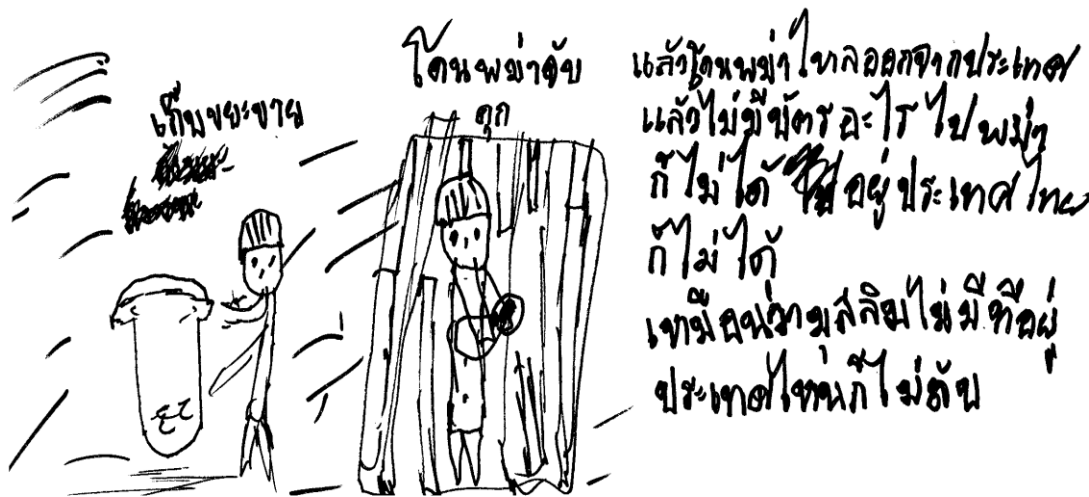 เก็บขยะขาย
โดนพม่าจับ
คุก
แล้วโดนพม่าไหลออกจากประเทศ
แล้วไม่มีบัตรอะไร ไปพม่า
ก็ไม่ได้ อยู่ประเทศไทย
ก็ไม่ได้
เหมือนว่ามุสลิมไม่มีที่อยู่
ประเทศไหนก็ไม่รับ